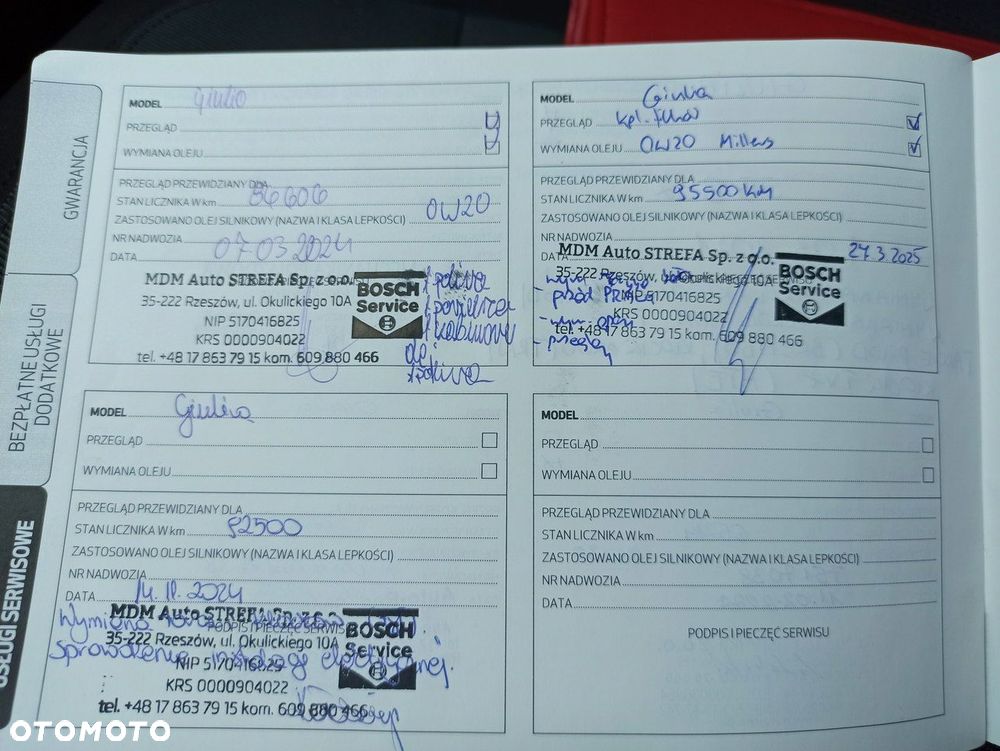 GWARANCJA
BEZPŁATNE USŁUGI
DODATKOWE
USŁUGI SERWISOWE
MODEL Giulia
PRZEGLĄD
WYMIANA OLEJU
PRZEGLĄD PRZEWIDZIANY DLA
STAN LICZNIKA W km 86606
ZASTOSOWANO OLEJ SILNIKOWY (NAZWA I KLASA LEPKOŚCI) 0W20
NR NADWOZIA
DATA 07 03 2024
MDM Auto STREFA Sp. z o.o.
35-222 Rzeszów, ul. Okulickiego 10A
NIP 5170416825
KRS 0000904022
tel. +48 17 863 79 15 kom. 609 880 466
BOSCH
Service
MODEL Giulia
PRZEGLĄD kpl. filtrów
WYMIANA OLEJU 0W20 Millers
PRZEGLĄD PRZEWIDZIANY DLA
STAN LICZNIKA W km 95500 KM
ZASTOSOWANO OLEJ SILNIKOWY (NAZWA I KLASA LEPKOŚCI)
NR NADWOZIA
DATA 27.3.2025
MDM Auto STREFA Sp. z o.o.
35-222 Rzeszów, ul. Okulickiego 10A
NIP 5170416825
KRS 0000904022
tel. +48 17 863 79 15 kom. 609 880 466
BOSCH
Service
- przód
- wym. opon
- przegląd
MODEL Giulia
PRZEGLĄD
WYMIANA OLEJU
PRZEGLĄD PRZEWIDZIANY DLA
STAN LICZNIKA W km 92500
ZASTOSOWANO OLEJ SILNIKOWY (NAZWA I KLASA LEPKOŚCI)
NR NADWOZIA
DATA 14.11.2024
Wymiana
MDM Auto STREFA Sp. z o.o.
PODPIS I PIECZĘĆ SERWISU
35-222 Rzeszów, ul. Okulickiego 10A
sprawdzenie elektrycznej.
NIP 5170416825
KRS 0000904022
tel. +48 17 863 79 15 kom. 609 880 466
BOSCH
Service
MODEL
PRZEGLĄD
WYMIANA OLEJU
PRZEGLĄD PRZEWIDZIANY DLA
STAN LICZNIKA W km
ZASTOSOWANO OLEJ SILNIKOWY (NAZWA I KLASA LEPKOŚCI)
NR NADWOZIA
DATA
PODPIS I PIECZĘĆ SERWISU
OTOMOTO